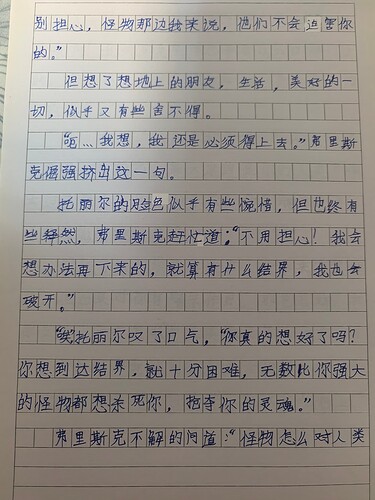 别担心，怪物那边我来说，他们不会迫害你
的。”
但想了想地上的朋友，生活，美好的一
切，似乎又有些舍不得。
“呃…我想，我还是必须得上去。”弗里斯
克倔强挤出这一句。
托丽尔的脸色似乎有些惋惜，但也终有
些释然，弗里斯克赶忙道：“不用担心！我会
想办法再下来的，就算有什么结界，我也会
破开。”
“唉”托丽尔叹了口气，“你真的想好了吗？
你想到达结界，就十分困难，无数比你强大
的怪物都想杀死你，抢夺你的灵魂。”
弗里斯克不解的问道：“怪物怎么对人类